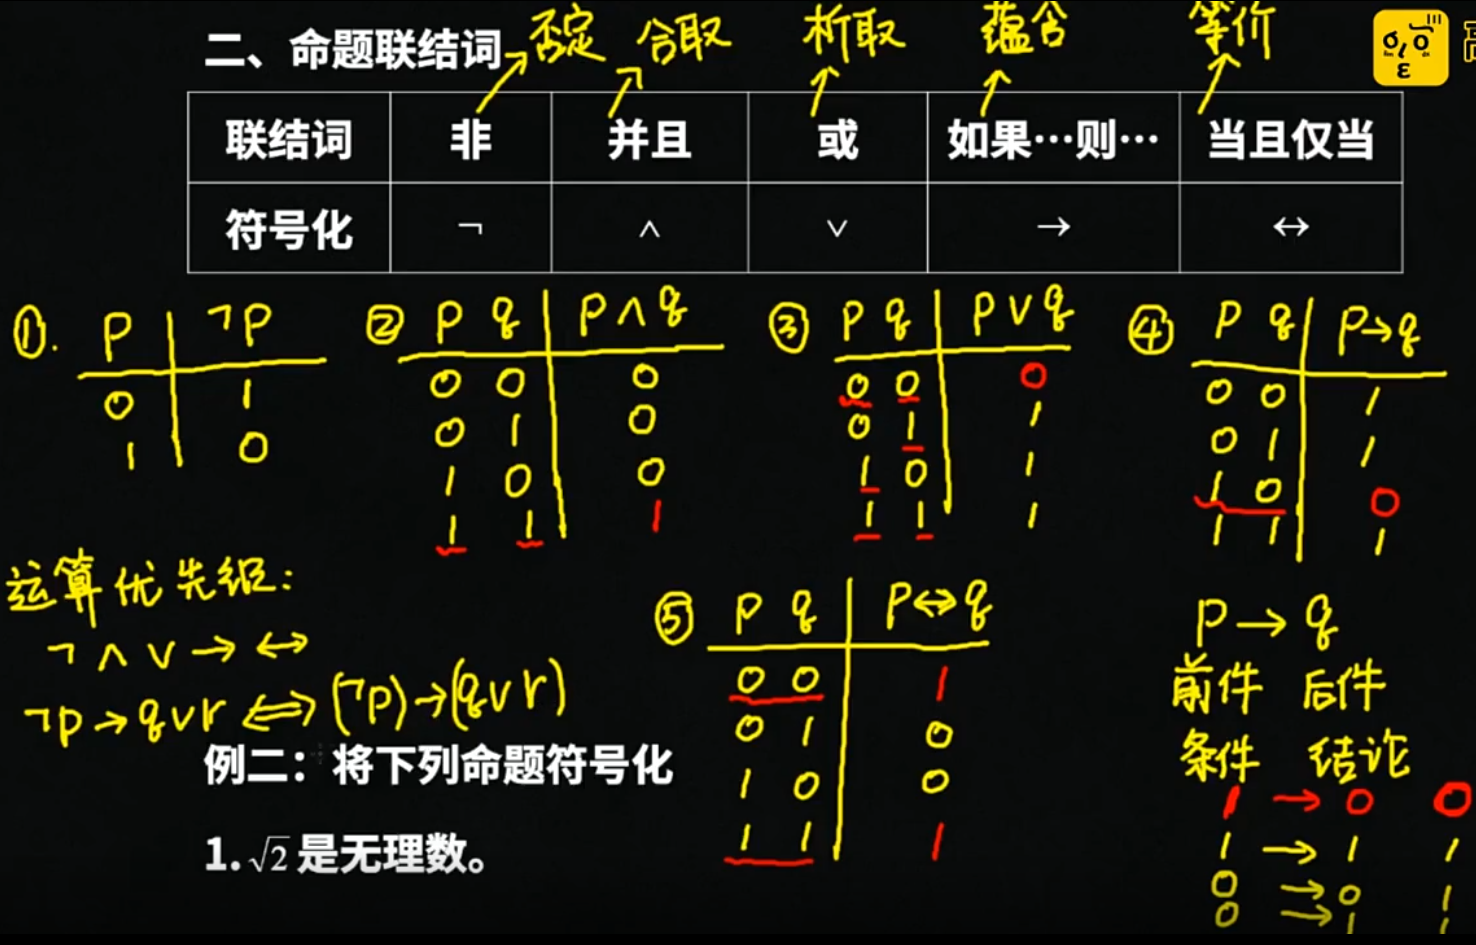 否定 合取 析取 蕴含 等价
二、命题联结词
联结词 非 并且 或 如果…则… 当且仅当
符号化 ¬ ∧ ∨ → ↔
①. p ¬p
0 1
1 0
② p q p∧q
0 0 0
0 1 0
1 0 0
1 1 1
③ p q p∨q
0 0 0
0 1 1
1 0 1
1 1 1
④ p q p→q
0 0 1
0 1 1
1 0 0
1 1 1
运算优先级:
¬ ∧ ∨ → ↔
¬p→q∨r ⇔ (¬p)→(q∨r)
⑤ p q p↔q
0 0 1
0 1 0
1 0 0
1 1 1
p → q
前件 后件
条件 结论
1 → 0 0
1 → 1 1
0 → 0 1
0 → 1 1
例二：将下列命题符号化
1. √2 是无理数。